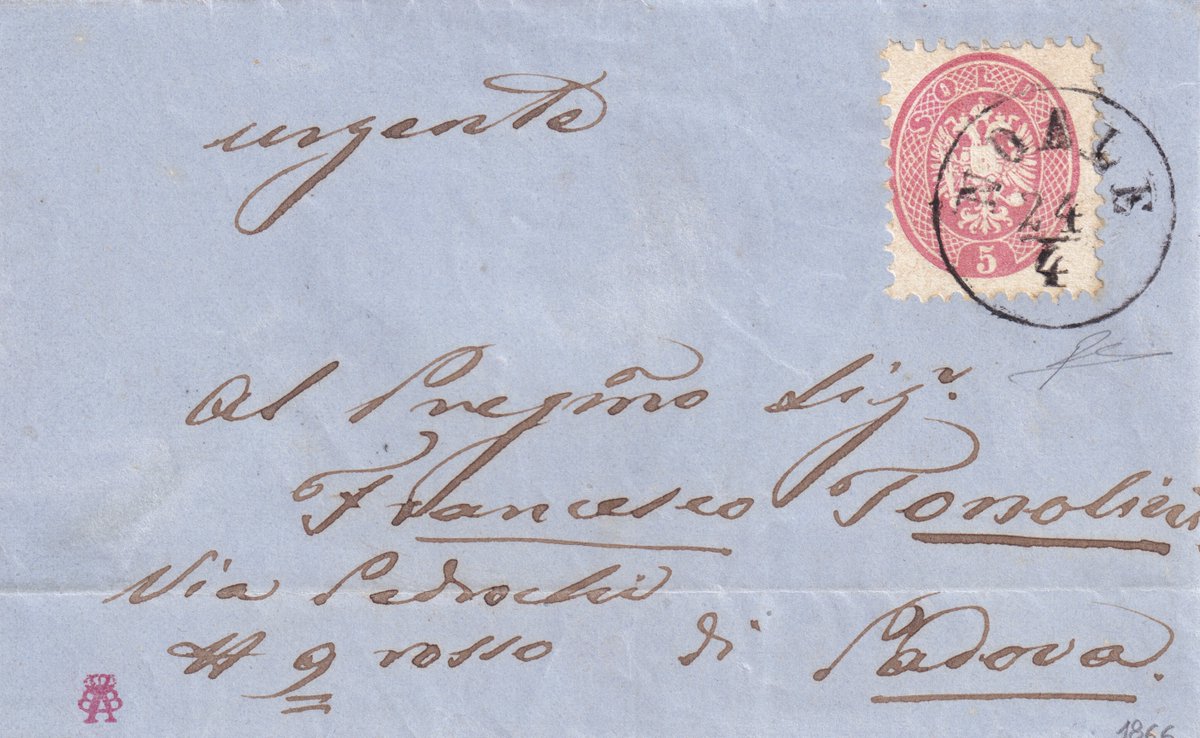 urgente
SOLDI
5
NOALE
24
4
Al Pregmo Sigr.
Francesco
Via Pedrochi
N 9 rosso di Padova.
1866